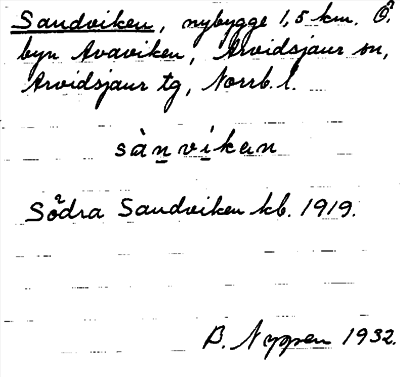 Sandviken, nybygge 1,5 km. Ö.
byn Avaviken, Arvidsjaur sn,
Arvidsjaur tg, Norrb. l.
sànvikan
Södra Sandviken kb. 1919.
B. Nyppen 1932.